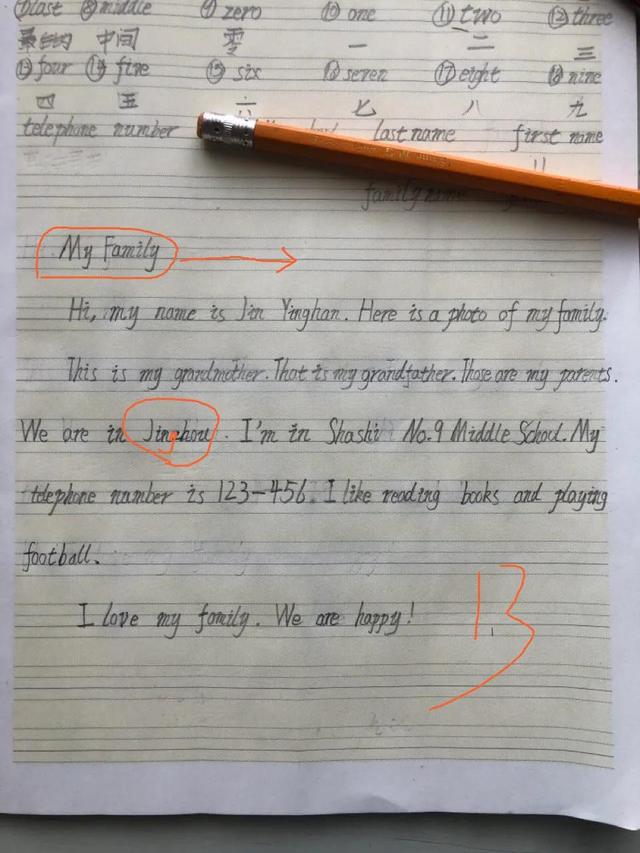 ⑦last ⑧middle ⑨zero ⑩one ⑪two ⑫three
中间 零 一 二 三
⑬four ⑭five ⑮six ⑯seven ⑰eight ⑱nine
四 五 六 七 八 九
telephone number last name first name
family name
My Family
Hi, my name is Jin Yinghan. Here is a photo of my family.
This is my grandmother. That is my grandfather. Those are my parents.
We are in Jinghou. I'm in Shashi No.9 Middle School. My
telephone number is 123-456. I like reading books and playing
football.
I love my family. We are happy!
13